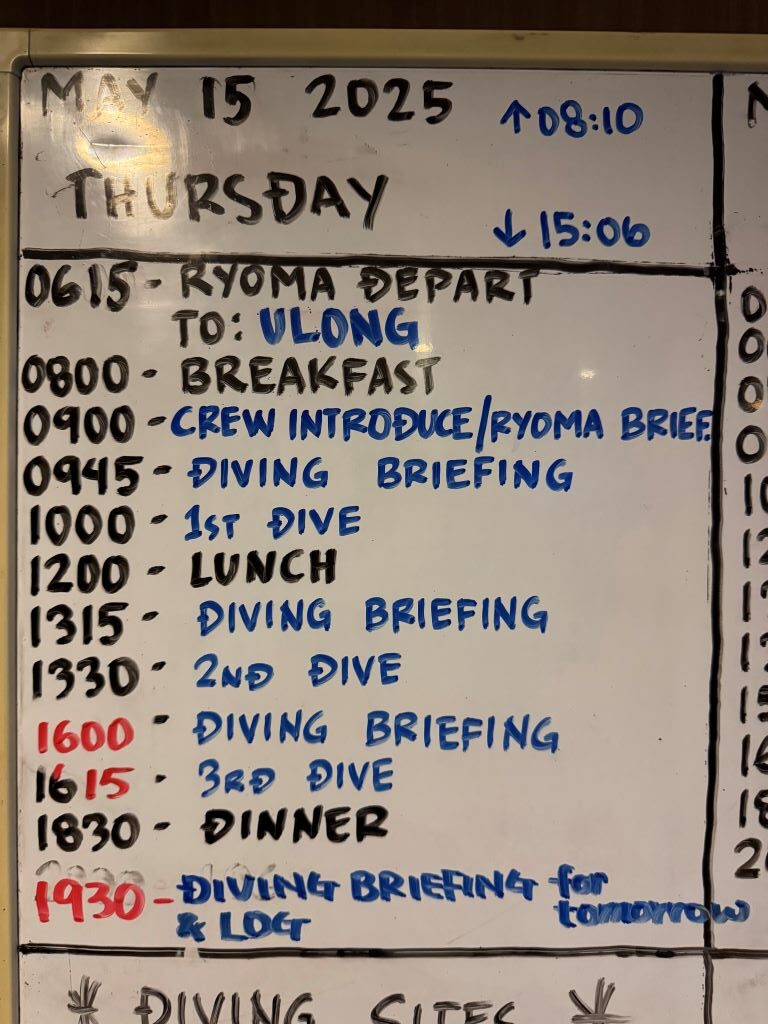 MAY 15 2025 ↑08:10
THURSDAY ↓15:06
0615 - RYOMA DEPART
TO: ULONG
0800 - BREAKFAST
0900 - CREW INTRODUCE/RYOMA BRIEF.
0945 - DIVING BRIEFING
1000 - 1ST DIVE
1200 - LUNCH
1315 - DIVING BRIEFING
1330 - 2ND DIVE
1600 - DIVING BRIEFING
1615 - 3RD DIVE
1830 - DINNER
1930 - DIVING BRIEFING - for
& LOG tomorrow
* DIVING SITES *